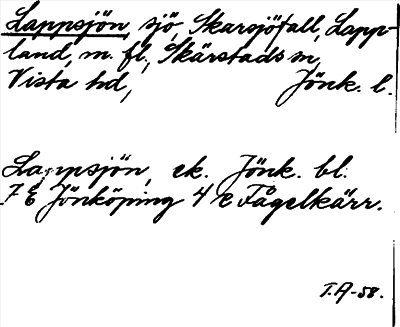 Lappsjön, sjö, Skarsjöfall, Lapp-
land, m. fl., Skärstads sn,
Vista hd, Jönk. l.
Lappsjön, ek. Jönk. bl.
7 E Jönköping 4 c Fågelkärr.
T.A-58.